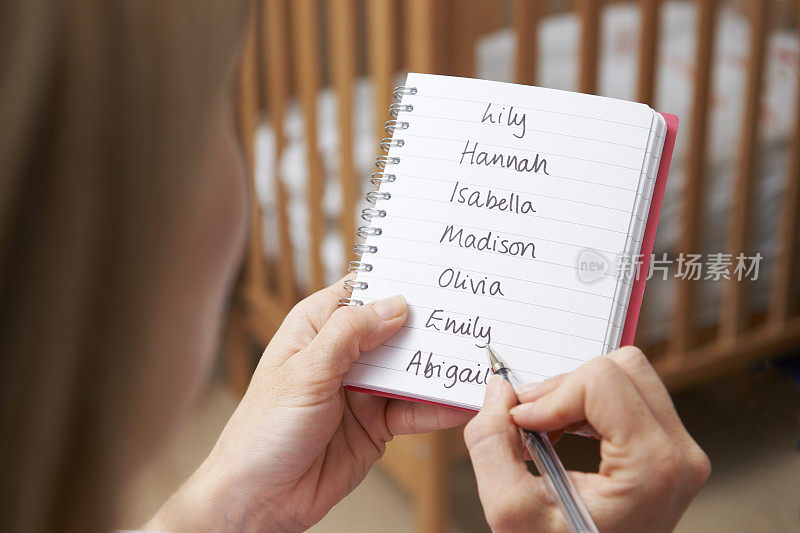 Lily
Hannah
Isabella
Madison
Olivia
Emily
Abigail
new 新视觉中国